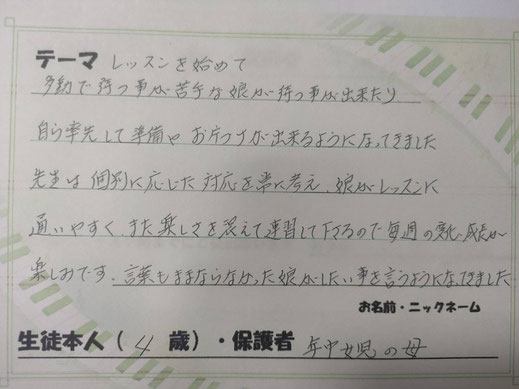 テーマ レッスンを始めて
多動で待つ事が苦手な娘が待つ事が出来たり
自ら率先して準備や お片づけが出来るようになってきました
先生は個別に応じた対応を常に考え、娘がレッスンに
通いやすく、また楽しさを交えて練習して下さるので毎週の変化、成長が
楽しみです。言葉もままならなかった娘がしたい事を言うようになってきました
お名前・ニックネーム
生徒本人（ 4 歳）・保護者 年中女児の母